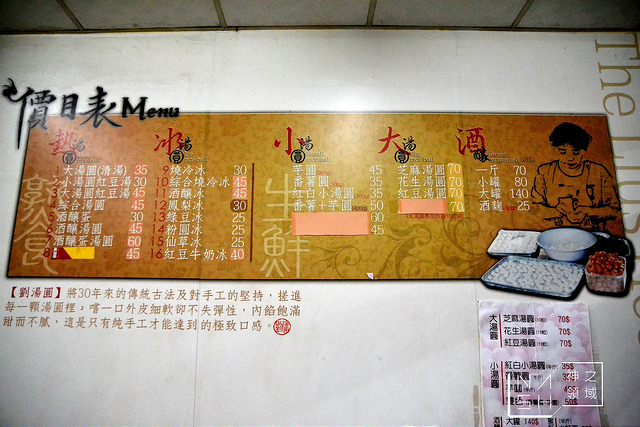 The Lus
價目表 Menu
熱湯圓
1 大湯圓(清湯) 35
2 小湯圓紅豆湯 30
3 大湯圓紅豆湯 45
4 綜合湯圓 45
5 酒釀蛋 30
6 酒釀湯圓 45
7 酒釀蛋湯圓 60
8 45
熟食
冰湯圓
9 燒冷冰 30
10 綜合燒冷冰 45
11 酒釀冰 45
12 鳳梨冰 30
13 綠豆冰 25
14 粉圓冰 25
15 仙草冰 25
16 紅豆牛奶冰 40
生鮮
小湯圓
芋圓 45
番薯圓 35
紅白小湯圓 35
番薯+芋圓 50
60
45
大湯圓
芝麻湯圓 70
花生湯圓 70
紅豆湯圓 70
70
酒釀
一斤 70
小罐 80
大罐 140
酒麴 25
【劉湯圓】將30年來的傳統古法及對手工的堅持，搓進
每一顆湯圓裡，嚐一口外皮細軟卻不失彈性，內餡飽滿
甜而不膩，這是只有純手工才能達到的極致口感。
大湯圓
芝麻湯圓 70$
花生湯圓 70$
紅豆湯圓 70$
小湯圓
紅白小湯圓 35$
芋圓
50$
大罐 140$
神之領域